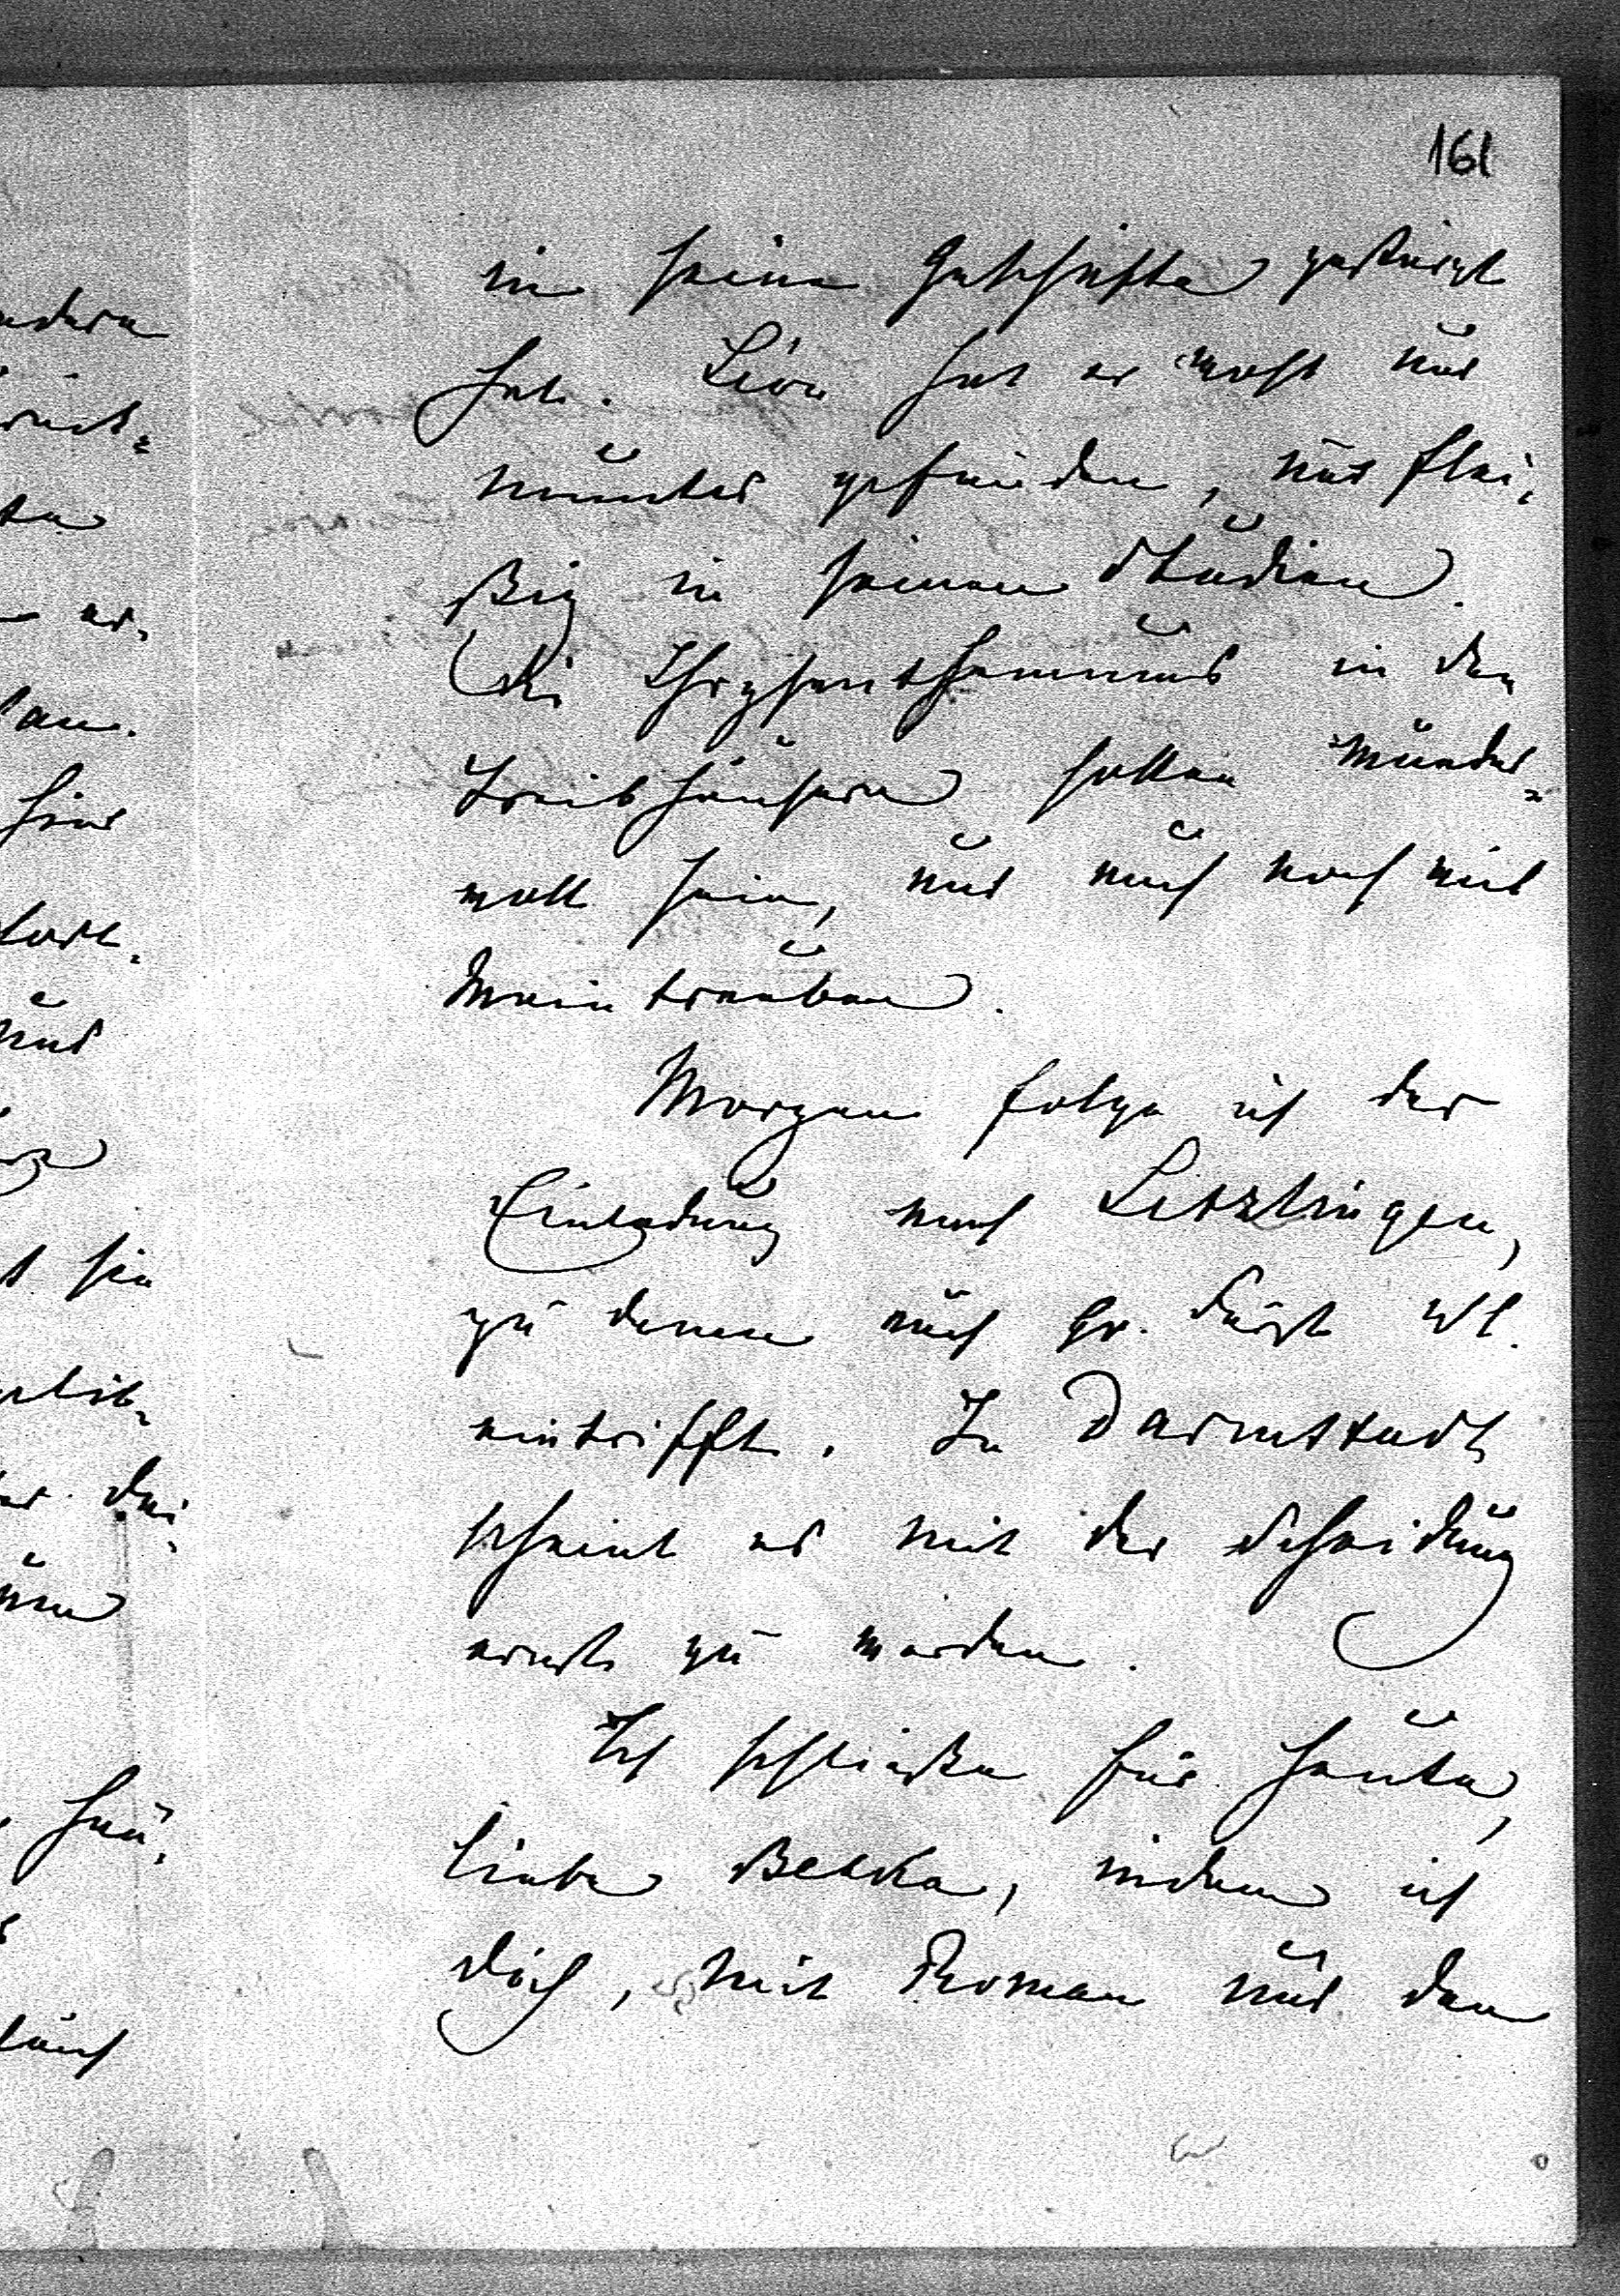 161
in seine Geschäfte gestürzt
hat. Léon hat er wohl und
munter gefunden, und flei-
ßig in seinen Studien.
Die Chrysanthemums in den
Treibhäusern sollen wunder-
voll sein, und auch noch viel
Weintrauben.
Morgen folge ich der
Einladung nach Letzlingen,
zu denen auch Gr. Fürst Wl.
eintrifft. In Darmstadt
scheint es mit der Scheidung
ernst zu werden.
Ich schließe für heute,
liebe Betka, indem ich
Dich, mit Roman und den